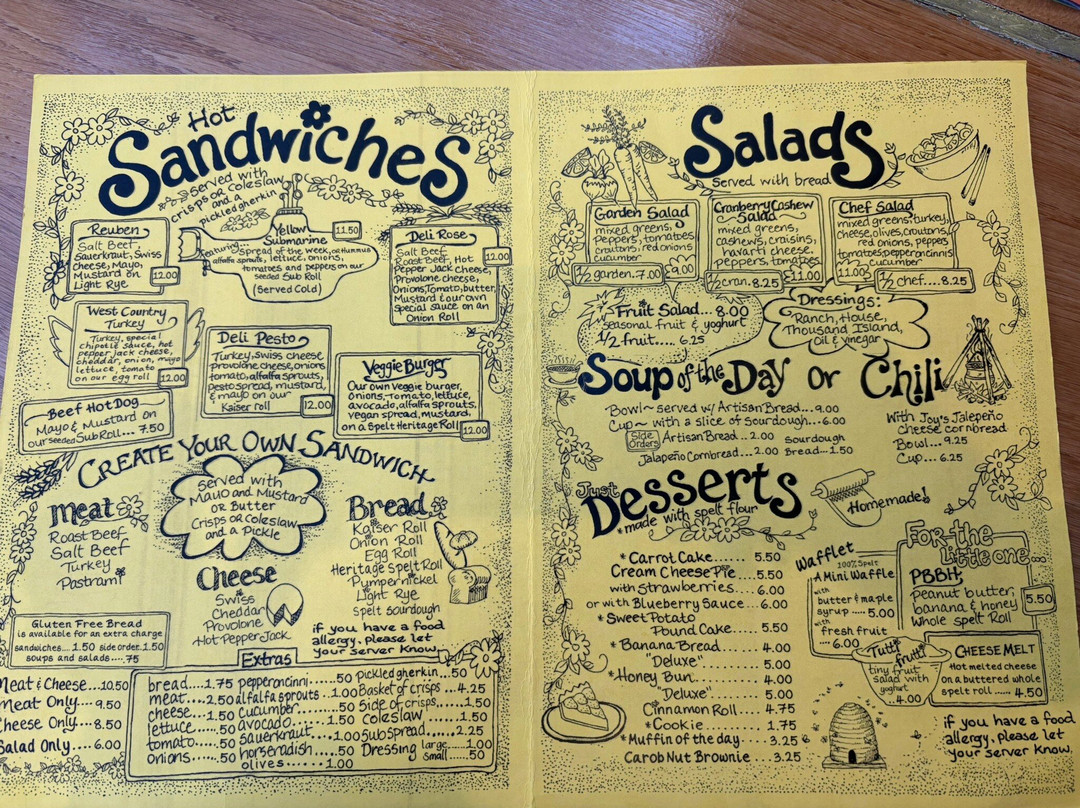 Hot
Sandwiches
Served with
crisps or coleslaw
and a
pickled gherkin
Reuben
Salt Beef
Sauerkraut, Swiss
Cheese, Mayo
Mustard on
Light Rye
12.00
Yellow
Submarine
11.50
featuring... Spread of the week or Hummus
alfalfa sprouts, lettuce, onions,
tomatoes and peppers on our
seeded Sub Roll
(Served Cold)
Deli Rose
Salt Beef
Roast Beef, Hot
Pepper Jack cheese,
Provolone cheese,
Onions, Tomato, butter,
Mustard & our own
special sauce on an
Onion Roll
12.00
West Country
Turkey
Turkey, special
chipotle sauce, hot
pepper jack cheese,
cheddar, onion, mayo
lettuce, tomato
on our egg roll
12.00
Deli Pesto
Turkey, Swiss cheese
provolone cheese, onions
tomato, alfalfa sprouts,
pesto spread, mustard,
& mayo on our
Kaiser roll
12.00
Veggie Burger
Our own veggie burger,
onions, tomato, lettuce,
avocado, alfalfa sprouts.
vegan spread, mustard
on a Spelt Heritage Roll
12.00
Beef Hot Dog
Mayo & Mustard on
our seeded Sub Roll... 7.50
Create Your Own Sandwich
Served with
Mayo and Mustard
or Butter
Crisps or Coleslaw
and a Pickle
Meat
Roast Beef
Salt Beef
Turkey
Pastrami
Cheese
Swiss
Cheddar
Provolone
Hot Pepper Jack
Bread
Kaiser Roll
Onion Roll
Egg Roll
Heritage Spelt Roll
Pumpernickel
Light Rye
Spelt Sourdough
Gluten Free Bread
is available for an extra charge
sandwiches... 1.50 side order. 1.50
soups and salads.... 75
if you have a food
allergy. please let
your server know.
Meat & Cheese... 10.50
Meat Only.... 9.50
Cheese Only... 8.50
Salad Only.... 6.00
Extras
bread.... 1.75
meat.... 2.50
cheese.... 1.50
lettuce..... .50
tomato..... .50
onions..... .50
pepperoncini..... .50
alfalfa sprouts.. 1.00
cucumber...... .50
avocado...... 1.50
sauerkraut.... 1.00
horseradish..... .50
olives....... 1.00
Pickled gherkin... .50
Basket of crisps... 4.25
Side of crisps.... 1.50
Coleslaw...... 1.50
Sub spread..... 2.25
Dressing large... 1.00
small... .50
Salads
Served with bread
Garden Salad
mixed greens,
Peppers, tomatoes,
croutons, red onions
cucumber
9.00
1/2 garden. 7.00
Cranberry Cashew
Salad
mixed greens,
cashews, craisins,
havarti cheese,
peppers, tomatoes
11.00
1/2 cran. 8.25
Chef Salad
mixed greens, turkey,
cheese, olives, croutons,
red onions, peppers
tomatoes, pepperoncinis
cucumber
11.00
1/2 chef.... 8.25
Fruit Salad... 8.00
seasonal fruit & yoghurt
1/2 fruit..... 6.25
Dressings:
Ranch, House,
Thousand Island,
Oil & Vinegar
Soup of the Day or Chili
Bowl ~ served w/ Artisan Bread... 9.00
Cup ~ with a slice of Sourdough... 6.00
Side
Orders
Artisan Bread... 2.00
Sourdough
Jalapeño Cornbread... 2.00 Bread... 1.50
With Joy's Jalepeño
cheese cornbread
Bowl... 9.25
Cup... 6.25
Just
Desserts
*made with spelt flour
Homemade!
*Carrot Cake...... 5.50
Cream Cheese Pie... 5.50
with Strawberries.... 6.00
or with Blueberry Sauce... 6.00
*Sweet Potato
Pound Cake..... 5.50
*Banana Bread..... 4.00
"Deluxe"...... 5.00
*Honey Bun....... 4.00
"Deluxe"...... 5.00
Cinnamon Roll.... 4.75
*Cookie........ 1.75
*Muffin of the day.... 3.25
Carob Nut Brownie... 3.25
Wafflet
100% Spelt
A Mini Waffle
with
butter & maple
syrup..... 5.00
with
fresh fruit
6.00
Tutti
frutti
tiny fruit
salad with
yoghurt
4.00
For the
little one...
PBBH,
peanut butter,
banana & honey
whole spelt Roll
5.50
Cheese Melt
Hot melted cheese
on a buttered whole
spelt roll ..... 4.50
if you have a food
allergy. please let
your server know.